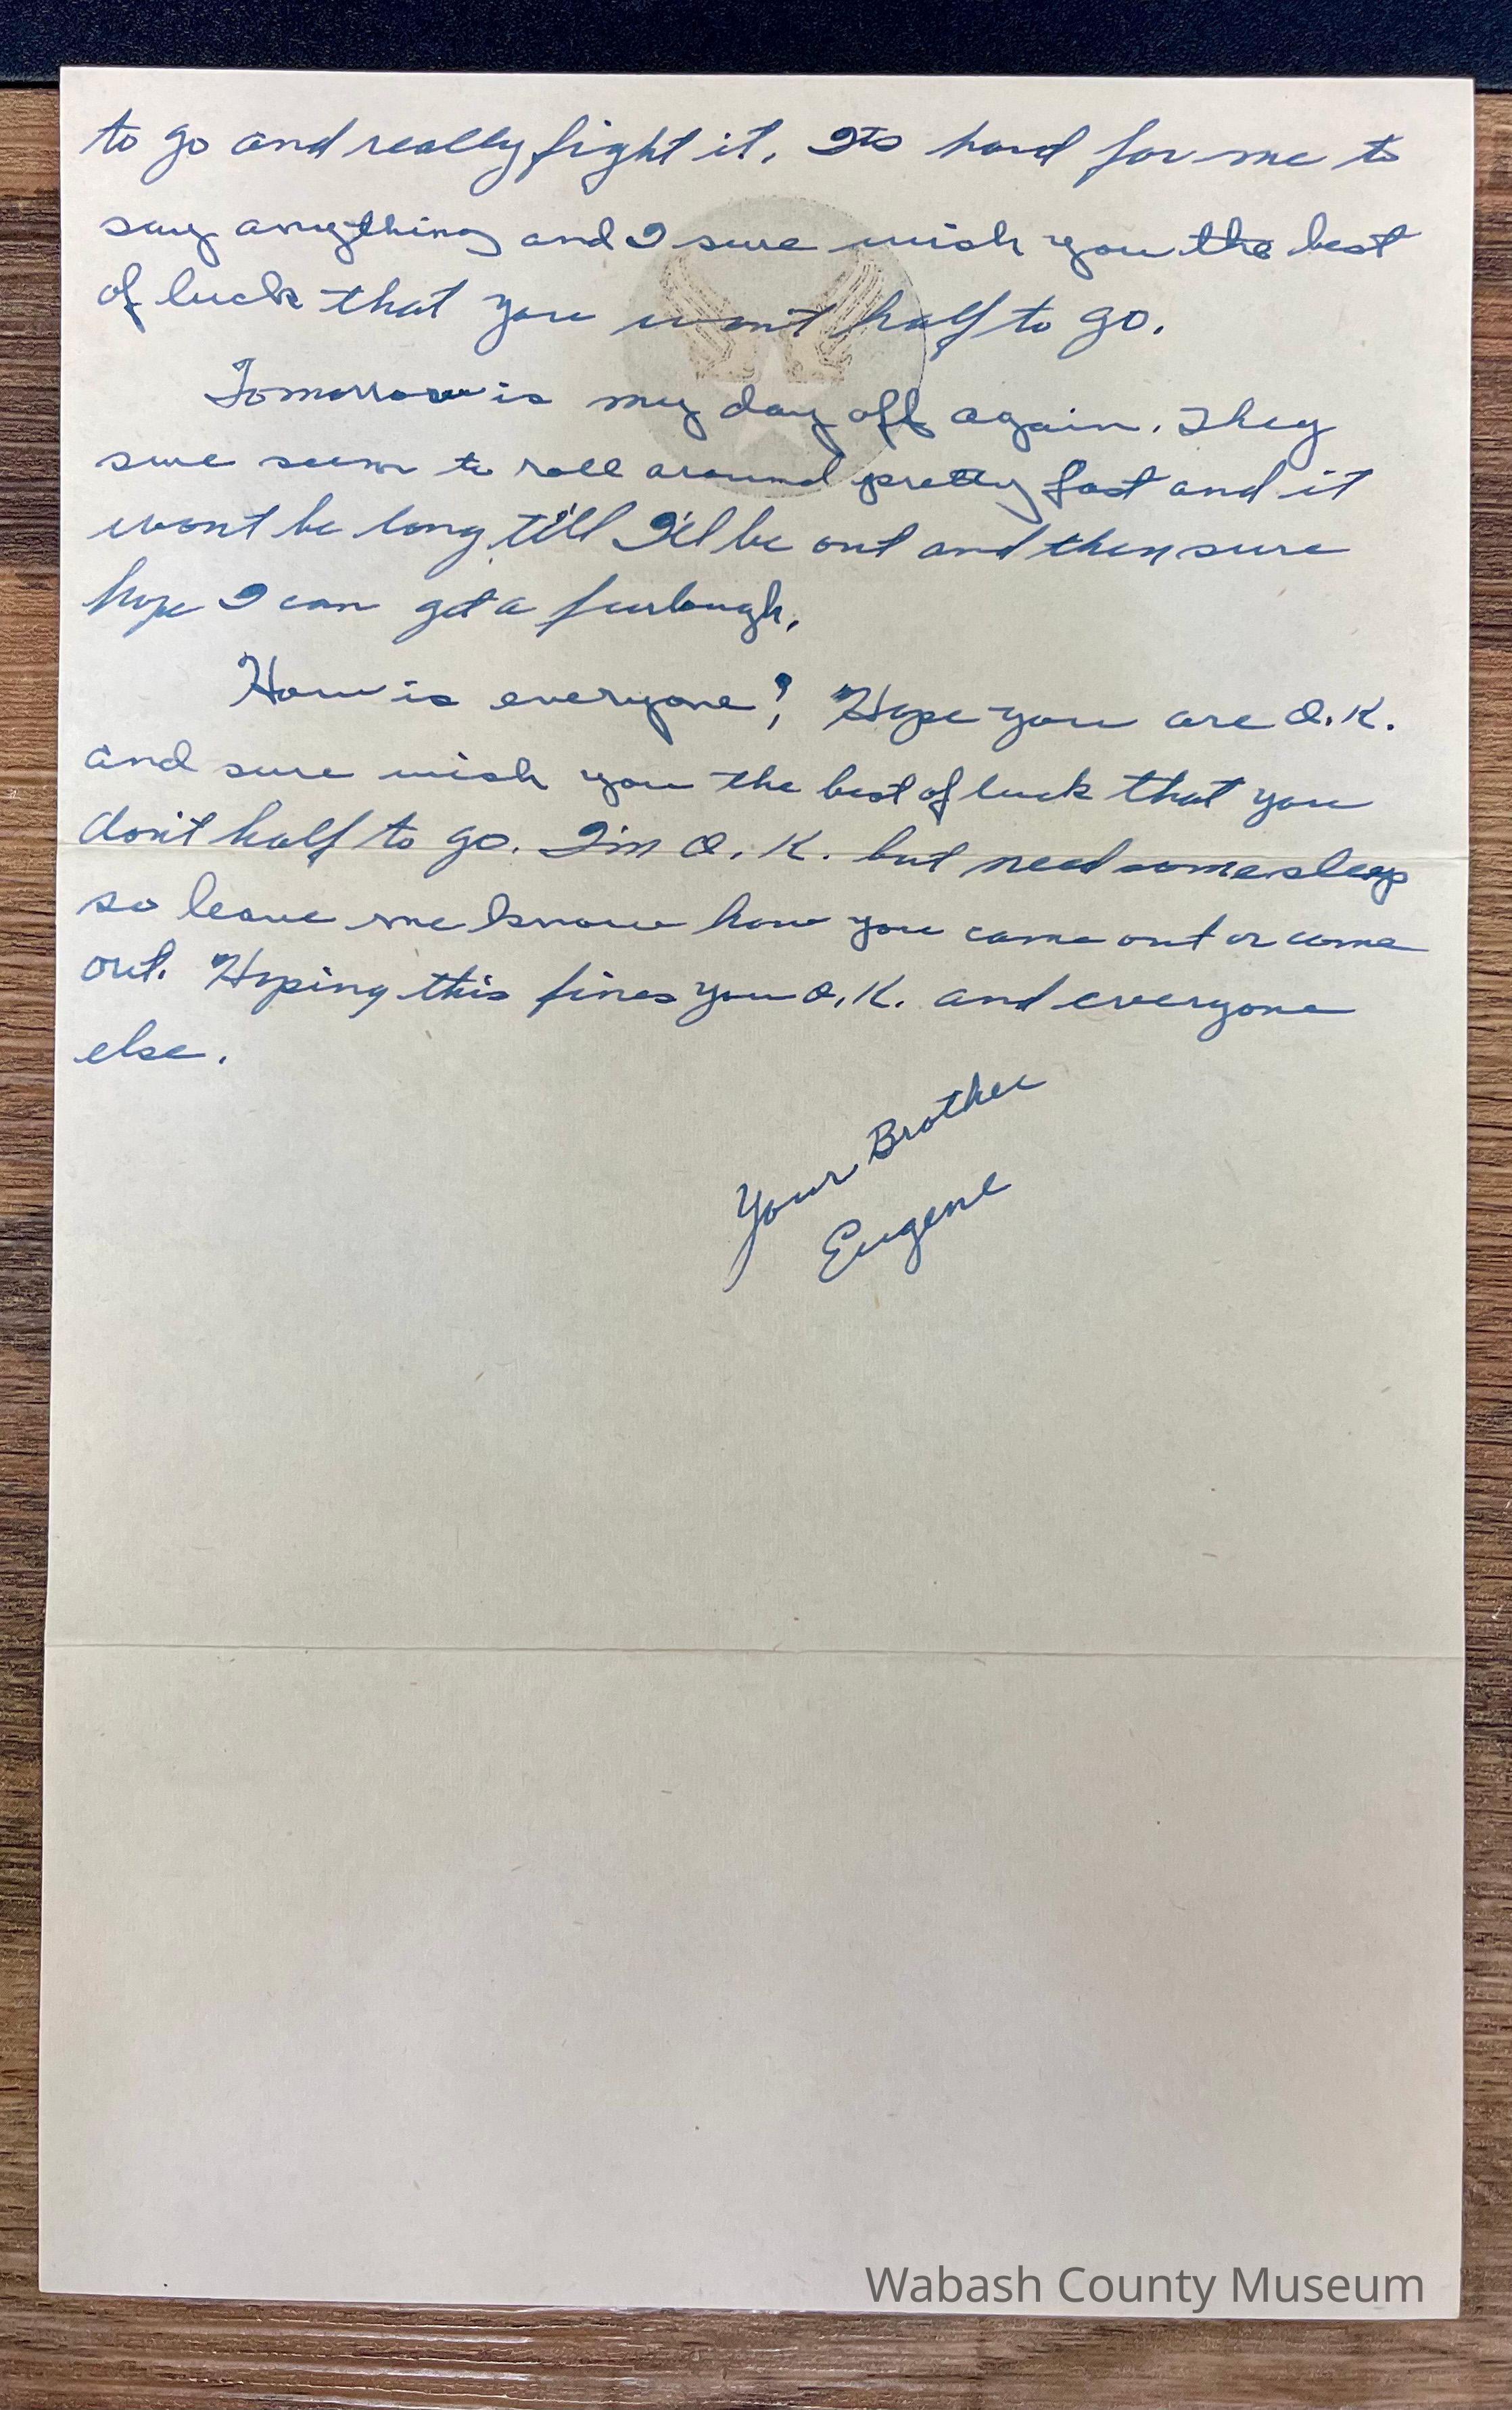 to go and really fight it. Its hard for me to
say anything and I sure wish you the best
of luck that you won't half to go.
Tomorrow is my day off again. They
sure seem to roll around pretty fast and it
wont be long till I'll be out and then sure
hope I can get a furlough.
How is everyone? Hope you are O.K.
and sure wish you the best of luck that you
don't half to go. I'm O.K. but need some sleep
so leave me know how you came out or come
out. Hoping this fines you O.K. and everyone
else.
Your Brother
Eugene
Wabash County Museum